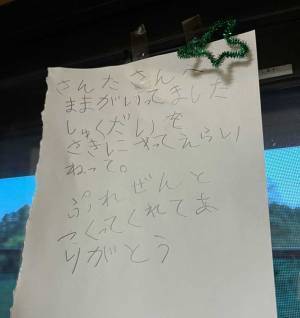 さんたさんへ
ままがいってました
しゅくだいを
さきにやってえらい
ねって。
ぷれぜんと
つくってくれてあ
りがとう